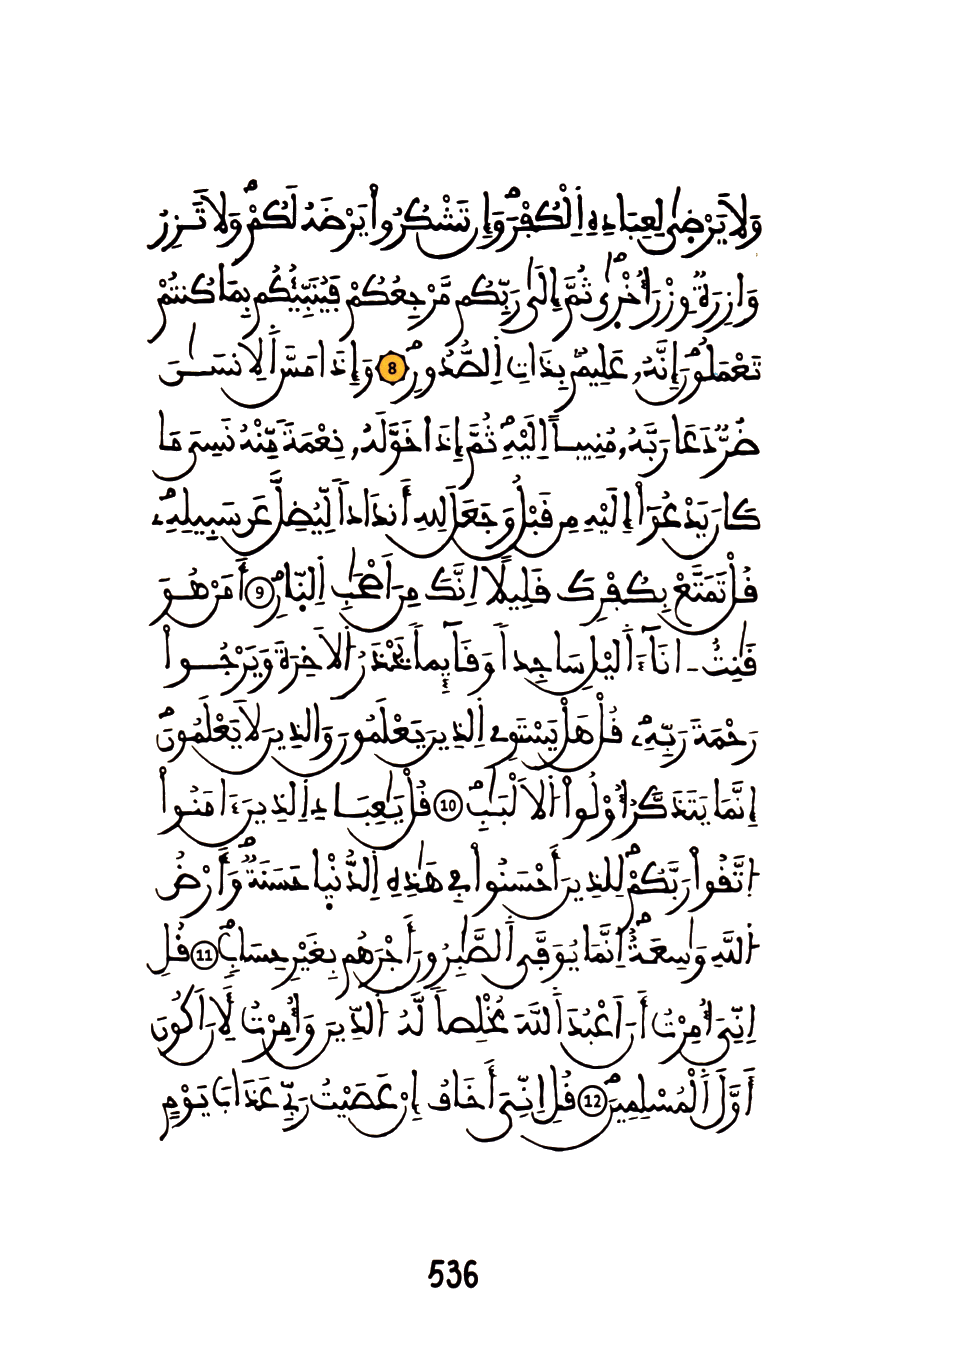 وَلَا يَرْضٰى لِعِبَادِهِ اِ۬لْكُفْرَۖ وَإِن تَشْكُرُواْ يَرْضَهُ لَكُمْۖ وَلَا تَزِرُ
وَازِرَةٞ وِزْرَ أُخْر۪ىٰۖ ثُمَّ إِلَىٰ رَبِّكُم مَّرْجِعُكُمْ فَيُنَبِّئُكُم بِمَا كُنتُمْ
تَعْمَلُونَۖ إِنَّهُۥ عَلِيمُۢ بِذَاتِ اِ۬لصُّدُورِۖ 8 وَإِذَا مَسَّ اَ۬لِانسَٰنَ
ضُرّٞ دَعَا رَبَّهُۥ مُنِيباً اِلَيْهِۖ ثُمَّ إِذَا خَوَّلَهُۥ نِعْمَةٗ مِّنْهُ نَسِيَ مَا
كَانَ يَدْعُوٓاْ إِلَيْهِ مِن قَبْلُ وَجَعَلَ لِلهِ أَندَاداٗ لِّيُضِلَّ عَن سَبِيلِهِۦۖ
قُلْ تَمَتَّعْ بِكُفْرِكَ قَلِيلاً اِنَّكَ مِنَ اَصْحَٰبِ اِ۬لنّ۪ارِۖ 9 أَمَنْ هُوَ
قَٰنِتٌ اٰنَآءَ اَ۬ليْلِ سَاجِداٗ وَقَآئِماٗ يَحْذَرُ اُ۬لَاخِرَةَ وَيَرْجُواْ
رَحْمَةَ رَبِّهِۦۖ قُلْ هَلْ يَسْتَوِے اِ۬لذِينَ يَعْلَمُونَ وَالذِينَ لَا يَعْلَمُونَۖ
إِنَّمَا يَتَذَكَّرُ أُوْلُواْ اُ۬لَالْبَٰبِۖ 10 قُلْ يَٰعِبَادِ اِ۬لذِينَ ءَامَنُواْ
اُ۪تَّقُواْ رَبَّكُمْۖ لِلذِينَ أَحْسَنُواْ فِے هَٰذِهِ اِ۬لدُّنْي۪ا حَسَنَةٞۖ وَأَرْضُ
اُ۬للَّهِ وَٰسِعَةٌۖ اِنَّمَا يُوَفَّى اَ۬لصَّٰبِرُونَ أَجْرَهُم بِغَيْرِ حِسَابٖۖ 11 قُلِ
اِنِّيَ أُمِرْتُ أَنَ اَعْبُدَ اَ۬للَّهَ مُخْلِصاٗ لَّهُ اُ۬لدِّينَ وَأُمِرْتُ لِأَنَ اَكُونَ
أَوَّلَ اَ۬لْمُسْلِمِينَۖ 12 قُلِ اِنِّيَ أَخَافُ إِنْ عَصَيْتُ رَبِّے عَذَابَ يَوْمٍ
536